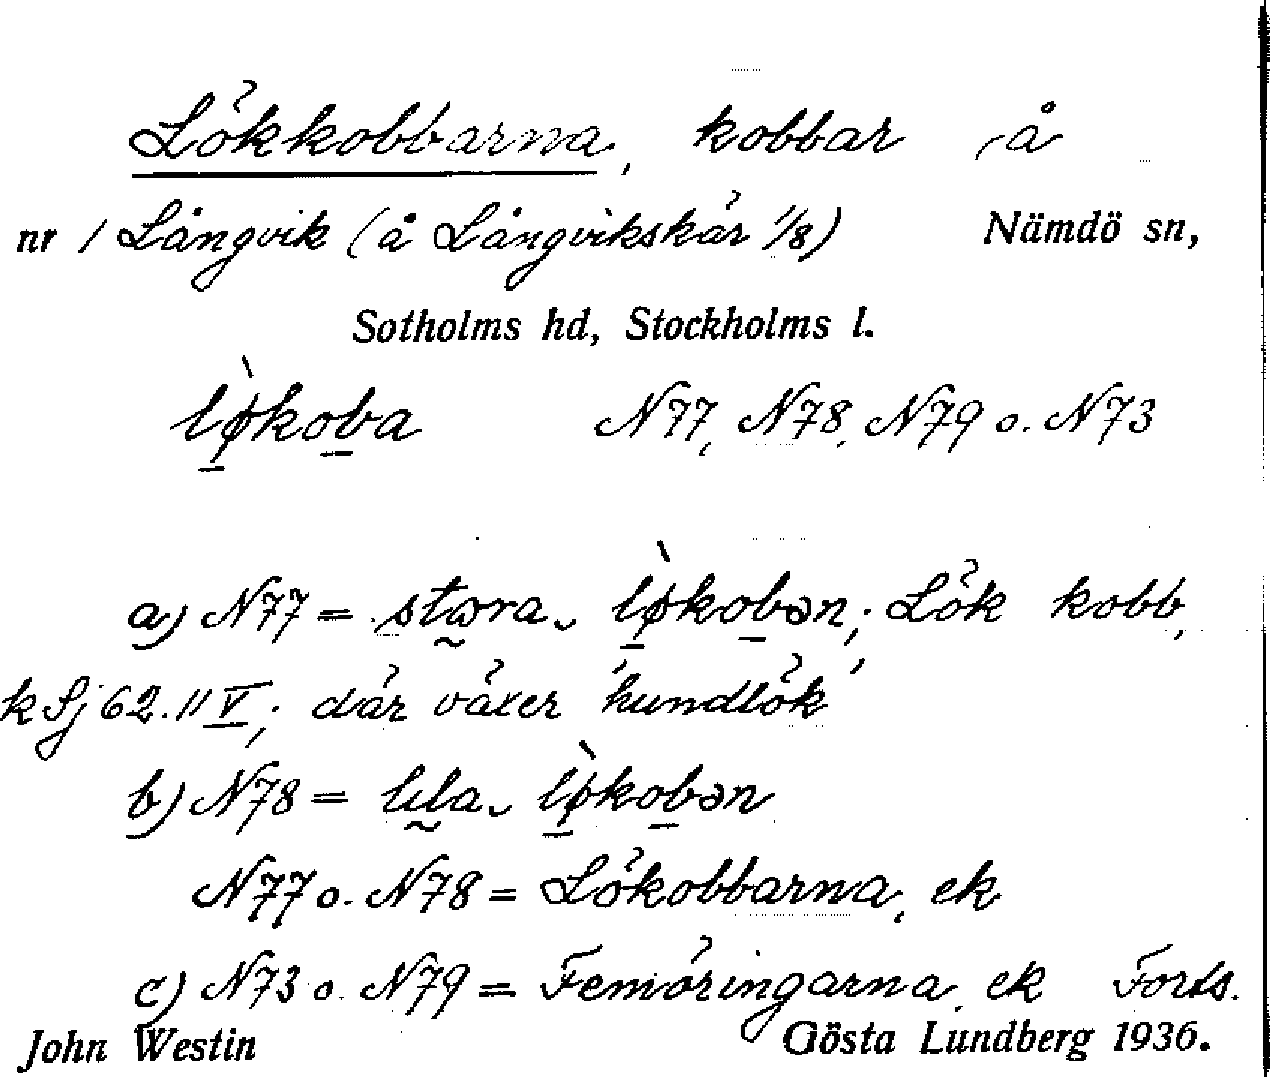 Lökkobbarna, kobbar å
nr 1 Långvik (å Långvikskär 1/8) Nämdö sn,
Sotholms hd, Stockholms l.
lø̀koba N77, N78, N79 o. N73
a) N77 = stora lø̀kobən; Lök kobb,
k Sj 62.11 V; 'där växer hundlök'
b) N78 = lila lø̀kobən
N77 o. N78 = Lökobbarna, ek
c) N73 o. N79 = Femöringarna, ek Forts.
John Westin Gösta Lundberg 1936.